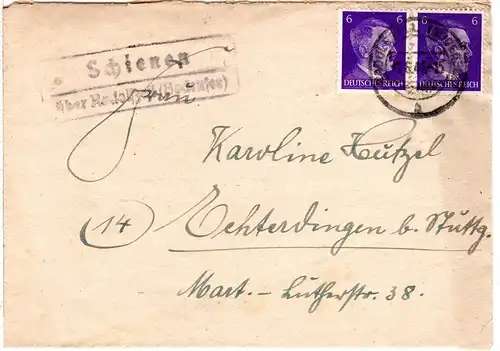 6 6
DEUTSCHES REICH DEUTSCHES REICH
Schienen
über Radolfzell (Bodensee)
Frau
Karoline Hutzel
(14) Echterdingen b. Stuttg.
Mart.-Lutherstr. 38.